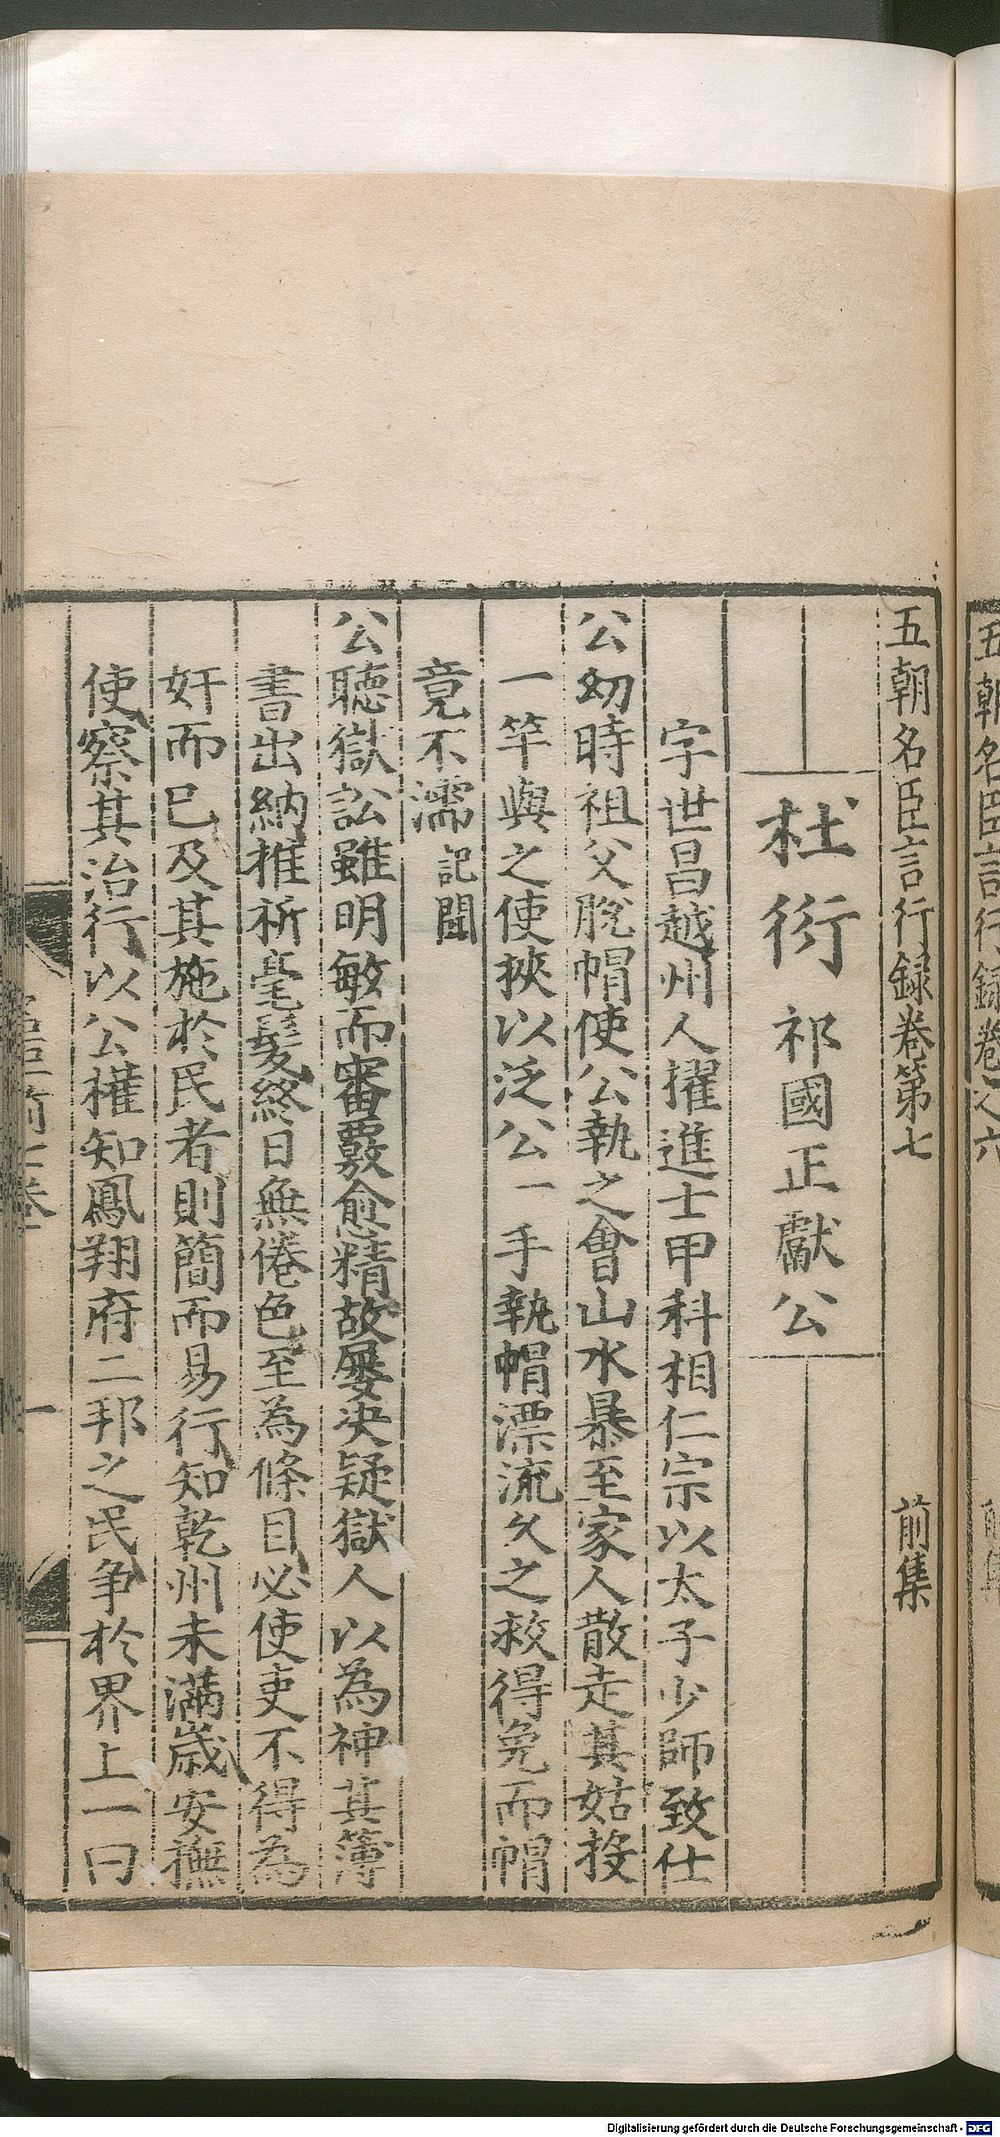 五朝名臣言行録卷之六
五朝名臣言行録卷第七　前集
杜衍　祁國正獻公
字世昌越州人擢進士甲科相仁宗以太子少師致仕
公㓜時祖父脫帽使公執之會山水暴至家人散走其姑投
一竿與之使挾以泛公一手執帽漂流久之救得免而帽
竟不濡記聞
公聽獄訟雖明敏而審覈愈精故屢決疑獄人以為神其簿
書出納推析毫髮終日無倦色至為條目必使吏不得為
奸而已及其施於民者則簡而易行知乾州未滿歲安撫
使察其治行以公權知鳳翔府二邦之民爭於界上一曰
一
Digitalisierung gefördert durch die Deutsche Forschungsgemeinschaft - DFG